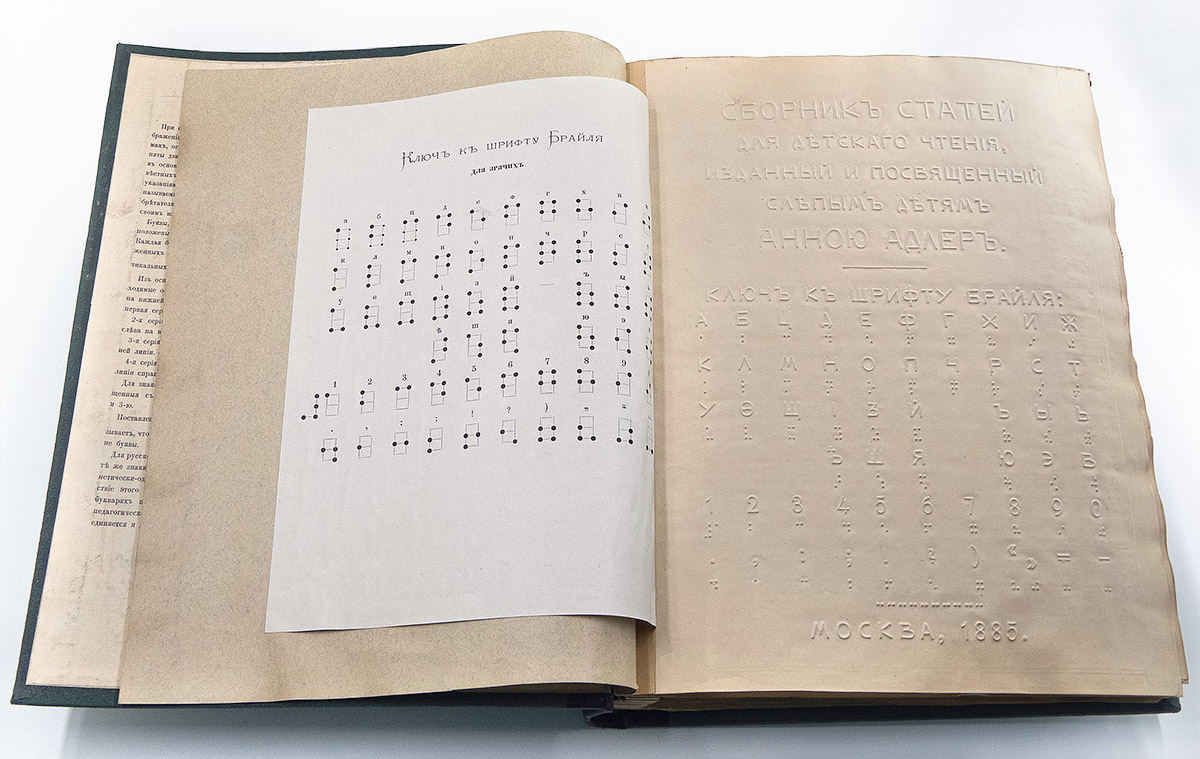 При
бражені
махъ, ог
няты дв
въ основ
вѣстныхъ
указанія
называем
брѣтател
своимъ и
Буквы
положены
Каждая б
женныхъ
тикальныхъ
Изъ осн
ходимые о
на нижней
первая сер
2-я сері
слѣва на н
3-я серія
ней линіи.
4-я серія
линіи справ
Для знак
щенныя съ
и 3-ю.
Поставле
зываетъ, что
не буквы.
Для русск
тѣ же знаки
нетически-од
ствіе этого
букваряхъ и
педагогическ
единяется и
Ключъ къ шрифту Брайля
для зрячихъ.
а б ц д е ф г х и
к л м н о п ч р с
у ѳ щ і з й — ъ ы
ѣ ш я ю э
1 2 3 4 5 6 7 8 9
. , : ; ? ) „ “
СБОРНИКЪ СТАТЕЙ
ДЛЯ ДѢТСКАГО ЧТЕНІЯ,
ИЗДАННЫЙ И ПОСВЯЩЕННЫЙ
СЛѢПЫМЪ ДѢТЯМЪ
АННОЮ АДЛЕРЪ.
КЛЮЧЪ КЪ ШРИФТУ БРАЙЛЯ:
А Б Ц Д Е Ф Г Х И Ж
К Л М Н О П Ч Р С Т
У Ѳ Щ І З Й Ъ Ы Ь
Ѣ Ш Я Ю Э В
1 2 3 4 5 6 7 8 9 0
. , : ; ! ? ) “ „ = –
МОСКВА, 1885.